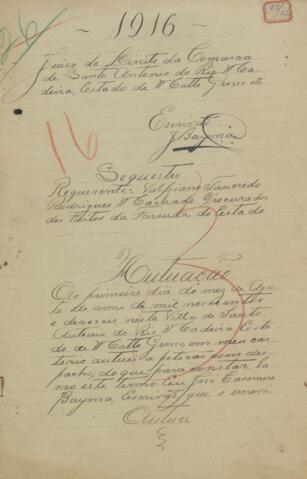 - 1916 -
26
Juizo de Direito da Comarca
de Santo Antonio do Rio Madeira,
Estado de Matto Grosso etc
Escrivão
J Bayma
16
Sequestro
Requerente: Vulpiano Tancredo
Rodrigues Machado Procurador
dos Feitos da Fazenda do Estado
Autuação
Ao primeiro dia do mez de Agosto
do anno de mil novecentos
e dezeseis nesta Villa de Santo
Antonio do Rio Madeira Estado
de Matto Grosso, em meu cartorio
autuei a petição com despacho;
do que para constar lavro
este termo. Eu José
Bayma, Escrivão que o escrevi.
Autuei